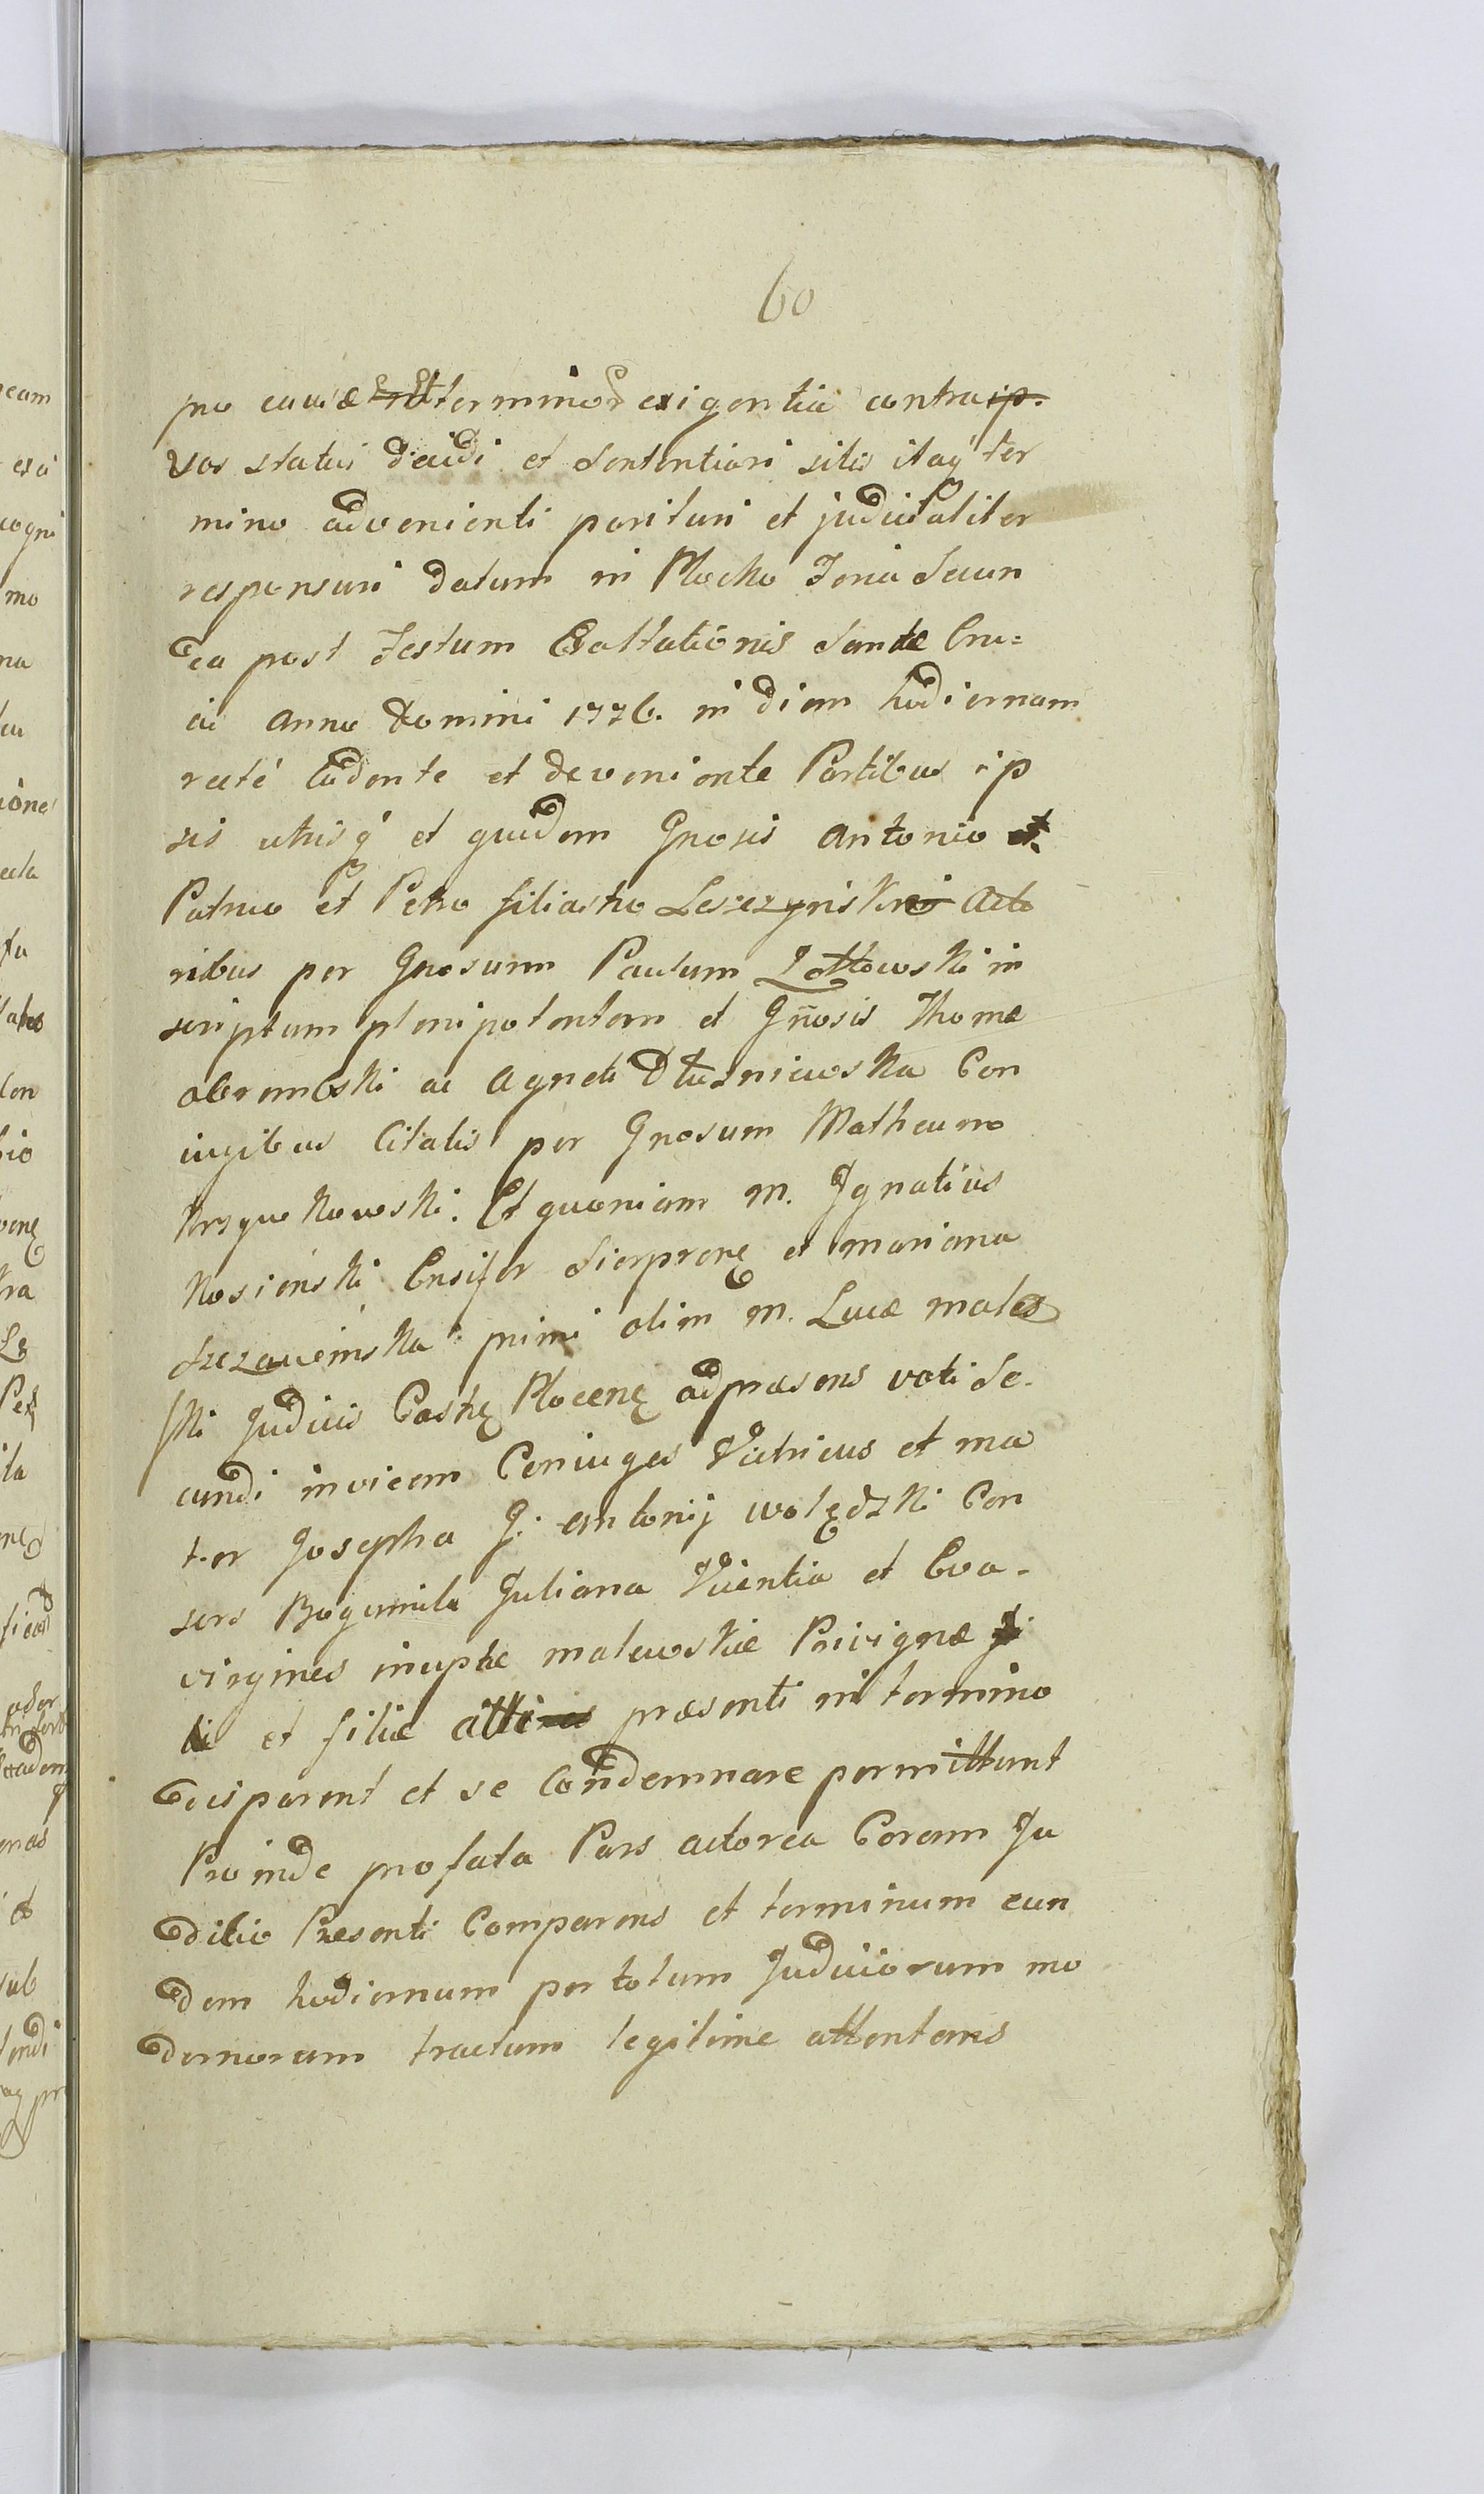 60
pro causæ et terminor exigentia contra ip.
vos statui decidi et sententiari sitis itaq ter
mino advenienti parituri et judicialiter
responsuri Datum in Plocko Feria Secun
da post Festum Exaltationis Sanctæ Cru=
cis anno Domini 1776. in diem hodiernam
recte cadente et deveniente Partibus ip
sis utrisq et quidem Gnosis Antonio et
Patruo et Petro filiastro Leszczynski Acto
ribus per Gnosum Paulum Zottowski in
scriptum plenipotentem et Gnosis Thoma
Obrembski ac Agneti Dłuzniewska Con
iugibus Citatis per Gnosum Matheum
Krzykowski. Et quoniam M. Ignatius
Kosinski Ensifer Sierprenę et Mariana
primi olim M. Lucæ Males
ski Judicis Castrę Plocenę adpræsens voti Se
cundi invicem Coniuges Vitricus et ma
ter Josepha G. Antonij Wolędzki Con
sors Bogumila Juliana Vicentia et Eva
virgines inuptæ Malewskie Privignæ
et filiæ præsenti in termino
dis parent et se Condemnare permittunt
Proinde profata Pars actorea Coram Ju
dicio Presenti Comparens et terminum eun
dem hodiernum per totum Judiciorum mo
dernorum tractum legitime attentans